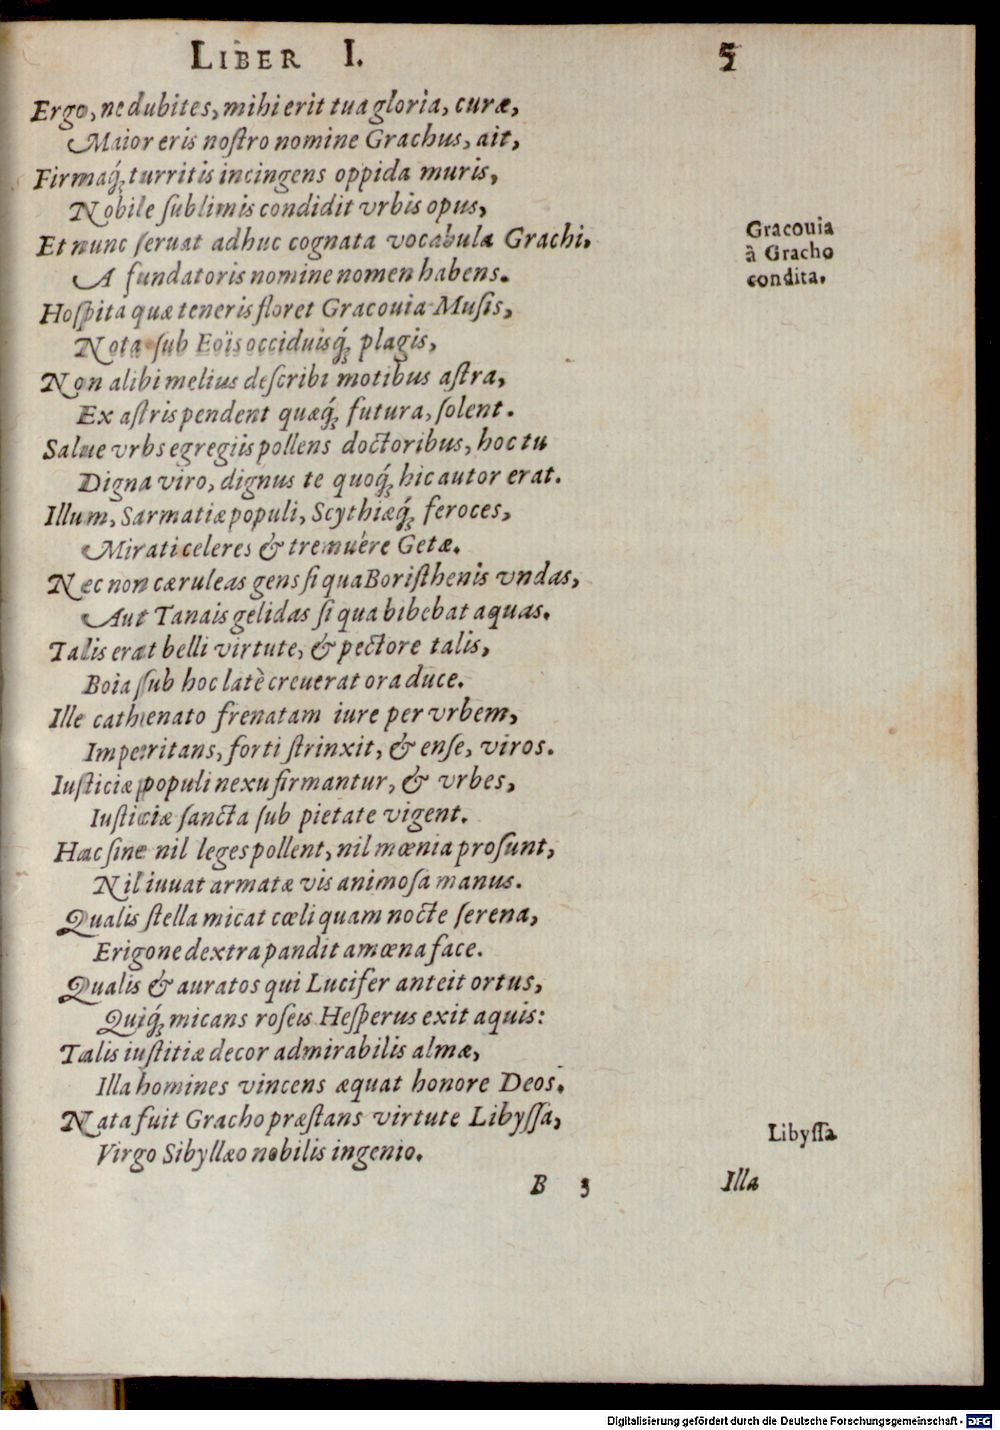 LIBER I. 5
Ergo, ne dubites, mihi erit tua gloria, curæ,
Maior eris nostro nomine Grachus, ait,
Firmaq́; turritis incingens oppida muris,
Nobile sublimis condidit vrbis opus,
Et nunc seruat adhuc cognata vocabula Grachi.
A fundatoris nomine nomen habens.
Gracouia
à Gracho
condita.
Hospita quæ teneris floret Gracouia Musis,
Nota sub Eois occiduisq́; plagis,
Non alibi melius describi motibus astra,
Ex astris pendent quæq́; futura, solent.
Salue vrbs egregiis pollens doctoribus, hoc tu
Digna viro, dignus te quoq́; hic autor erat.
Illum, Sarmatiæ populi, Scythiæq́; feroces,
Mirati celeres & tremuêre Getæ.
Nec non cæruleas gens si qua Boristhenis vndas,
Aut Tanais gelidas si qua bibebat aquas.
Talis erat belli virtute, & pectore talis,
Boia sub hoc latè creuerat ora duce.
Ille cathenato frenatam iure per vrbem,
Imperitans, forti strinxit, & ense, viros.
Iusticiæ populi nexu firmantur, & vrbes,
Iusticiæ sancta sub pietate vigent.
Hac sine nil leges pollent, nil mœnia prosunt,
Nil iuuat armatæ vis animosa manus.
Qualis stella micat cœli quam nocte serena,
Erigone dextra pandit amœna face.
Qualis & auratos qui Lucifer anteit ortus,
Quiq́; micans roseis Hesperus exit aquis:
Talis iustitiæ decor admirabilis almæ,
Illa homines vincens æquat honore Deos.
Nata fuit Gracho præstans virtute Libyssa,
Virgo Sibyllæo nobilis ingenio.
Libyssa
B 3 Illa
Digitalisierung gefördert durch die Deutsche Forschungsgemeinschaft - DFG